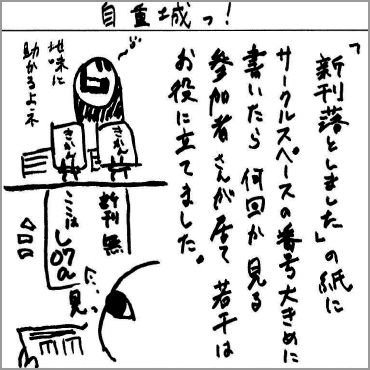 自重城っ!
「新刊落としました」の紙に
サークルスペースの番号大きめに
書いたら何回か見る
参加者さんが居て若干は
お役に立てました。
地味に
助かるよネ
きかん
きかん
新刊無
ここは
し07a
に、
見っ